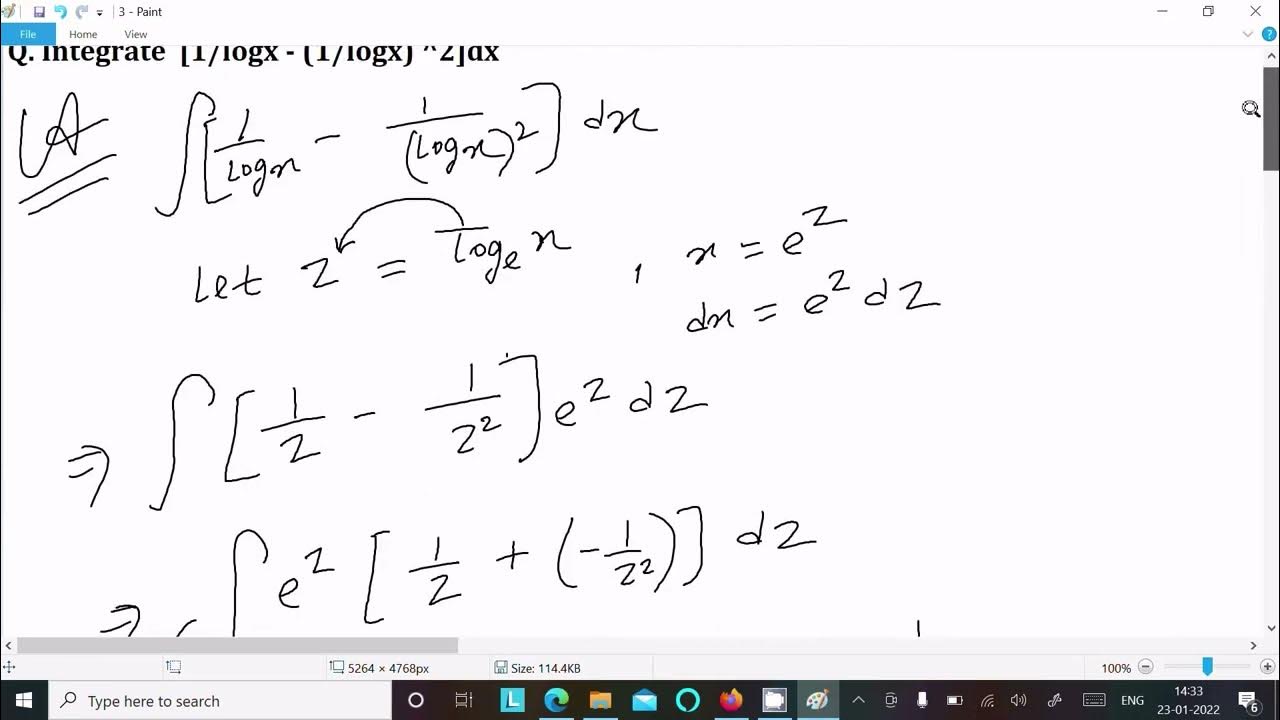 3 - Paint
File Home View
Q. Integrate [1/logx - (1/logx) ^2]dx
A ∫[1/logx - 1/(logx)^2] dx
Let z = log_e x , x = e^z
dx = e^z dz
⇒ ∫[1/z - 1/z^2] e^z dz
⇒ ∫ e^z [1/z + (-1/z^2)] dz
5264 × 4768px Size: 114.4KB 100%
Type here to search L ENG 14:33
23-01-2022 6